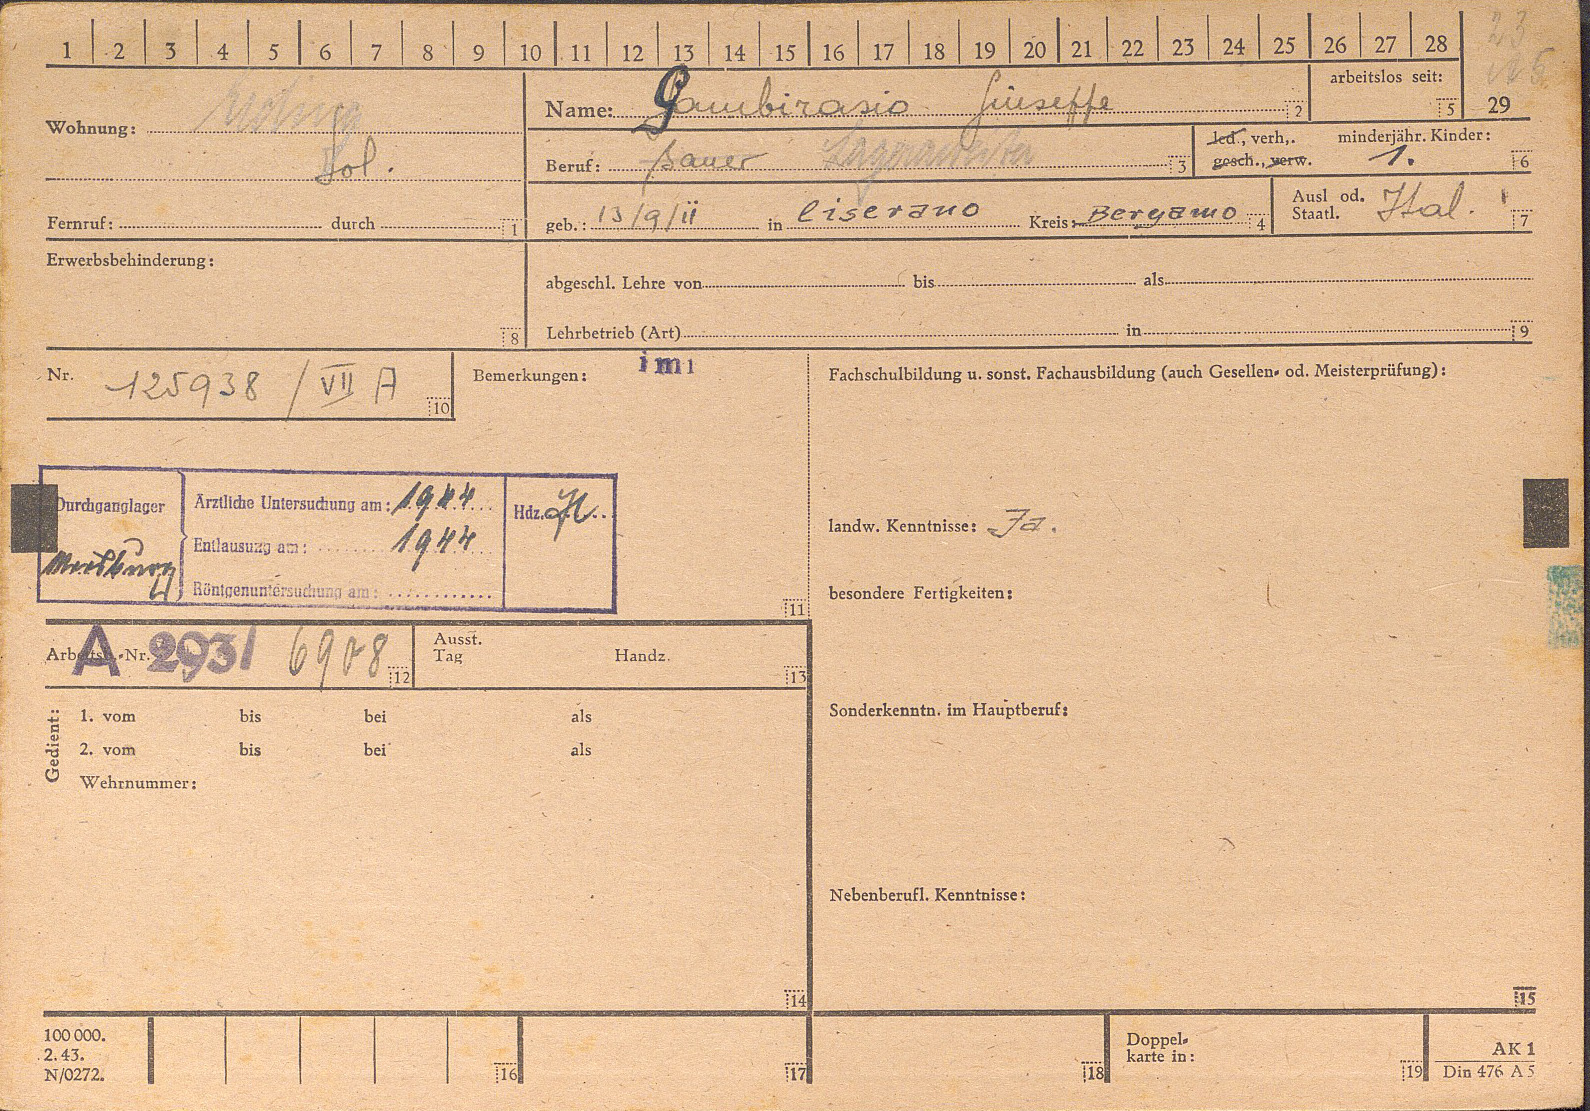 1 2 3 4 5 6 7 8 9 10 11 12 13 14 15 16 17 18 19 20 21 22 23 24 25 26 27 28
23
29
arbeitslos seit:
5
Wohnung:
Sol.
Name: Gambirasio Giuseppe
2
Beruf: Bauer Lagerarbeiter
3
led., verh.,
gesch., verw.
minderjähr. Kinder:
1.
6
Fernruf: durch
1
geb.: 13/9/11 in Ciserano Kreis: Bergamo
4
Ausl od.
Staatl. Ital.
7
Erwerbsbehinderung:
8
abgeschl. Lehre von bis als
Lehrbetrieb (Art) in
9
Nr. 125938 / VII A
10
Bemerkungen:
imi
Fachschulbildung u. sonst. Fachausbildung (auch Gesellen- od. Meisterprüfung):
Durchganglager
Ärztliche Untersuchung am: 1944
Entlausung am: 1944
Röntgenuntersuchung am:
Hdz.
11
landw. Kenntnisse: Ja.
besondere Fertigkeiten:
Arbeitsb.-Nr. A 293/ 6908
12
Ausst.
Tag
Handz.
13
Sonderkenntn. im Hauptberuf:
Gedient:
1. vom bis bei als
2. vom bis bei als
Wehrnummer:
Nebenberufl. Kenntnisse:
14
15
100 000.
2. 43.
N/0272.
16
17
18
Doppel-
karte in:
19
AK 1
Din 476 A 5